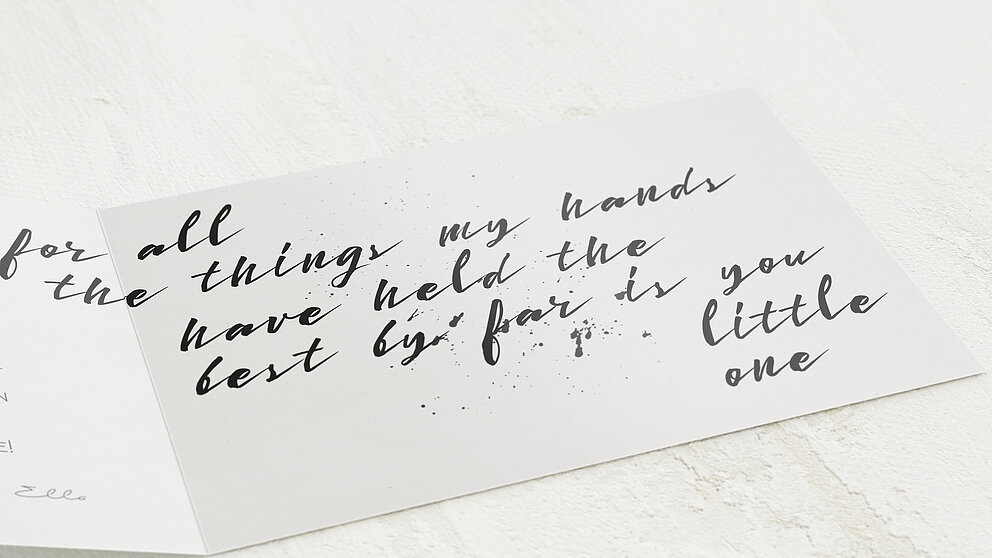 for all
the things my hands
have held the
best by far is you
little
one
Ella